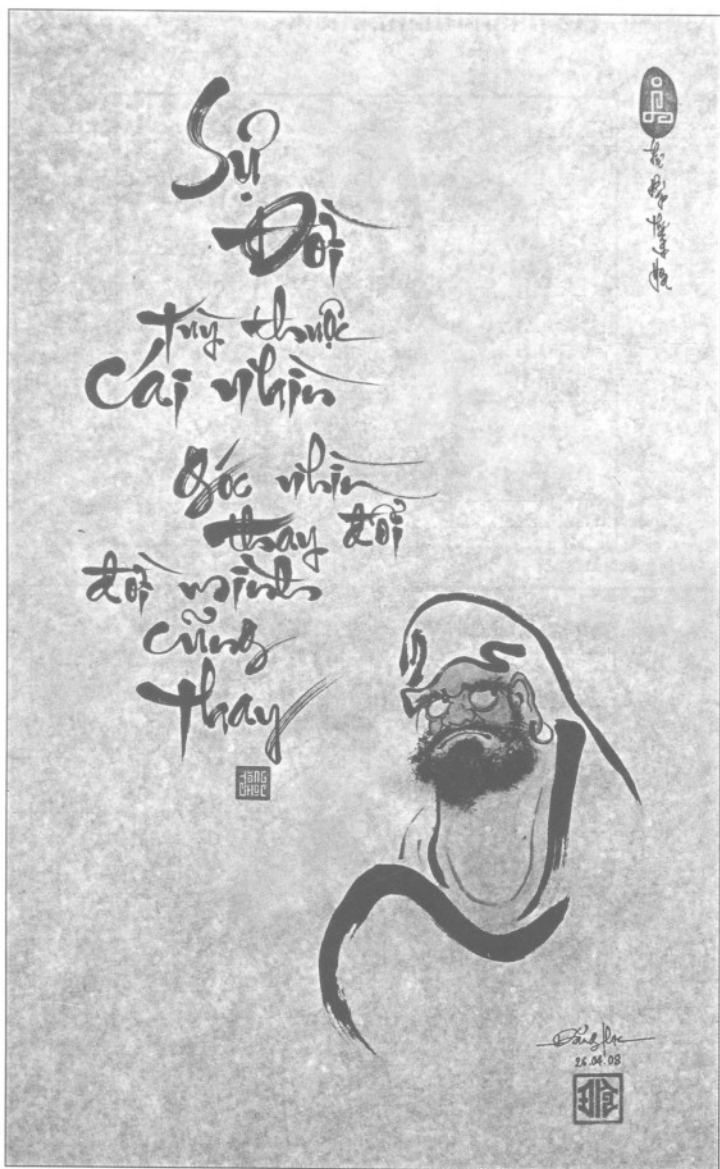 Sự
Đời
tùy thuộc
Cái nhìn
Góc nhìn
thay đổi
đời mình
cũng
thay
ĐĂNG
HỌC
Đăng Học
26.04.08